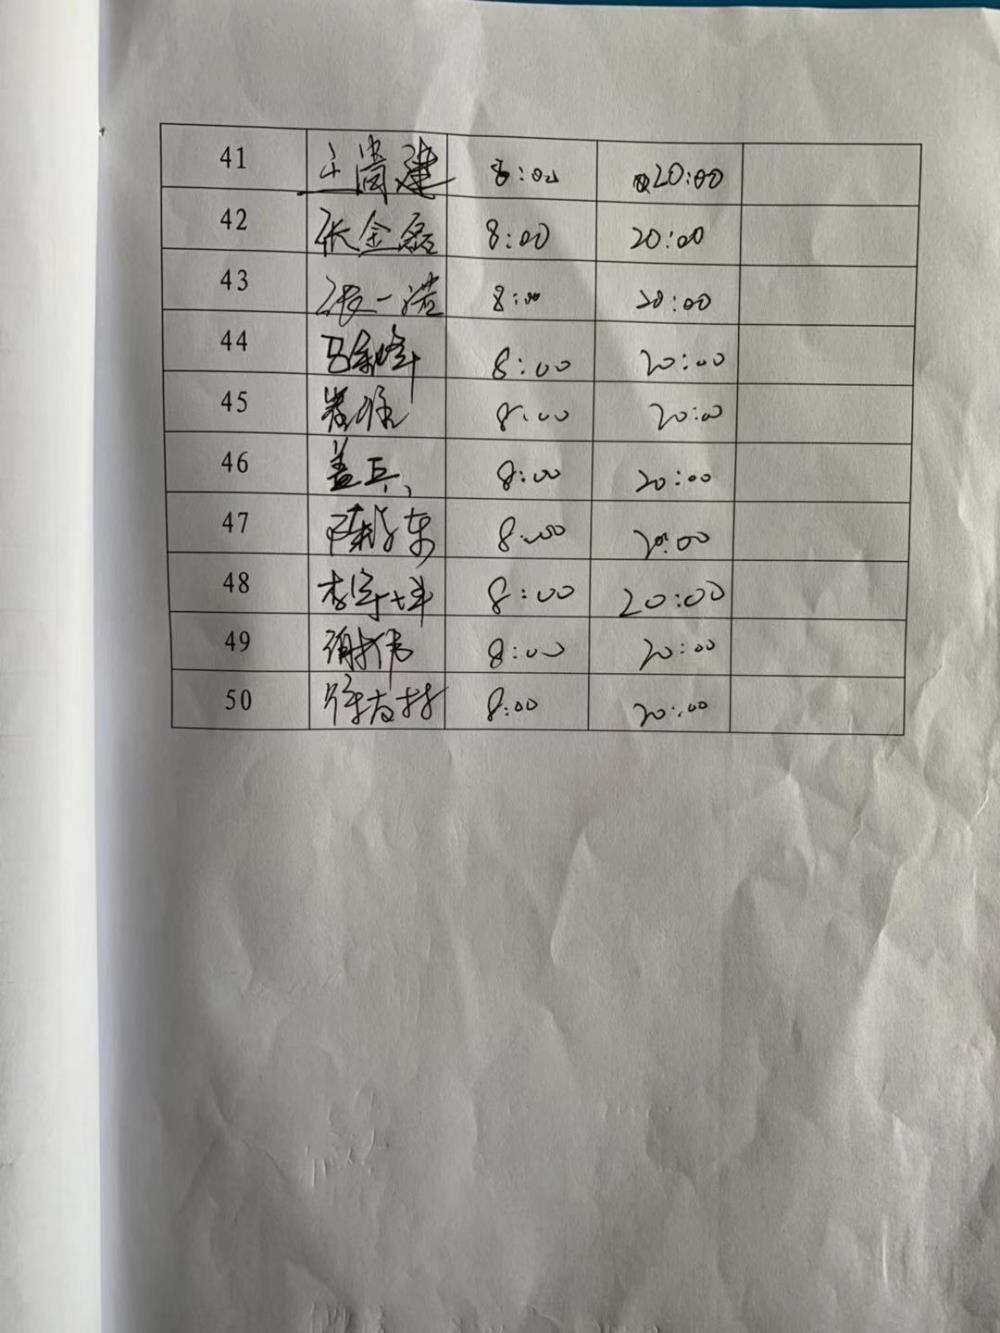 41 王尚建 8:00 20:00
42 张金磊 8:00 20:00
43 张一诺 8:00 20:00
44 8:00 20:00
45 8:00 20:00
46 盖兵 8:00 20:00
47 陈学东 8:00 20:00
48 8:00 20:00
49 谢伟 8:00 20:00
50 8:00 20:00